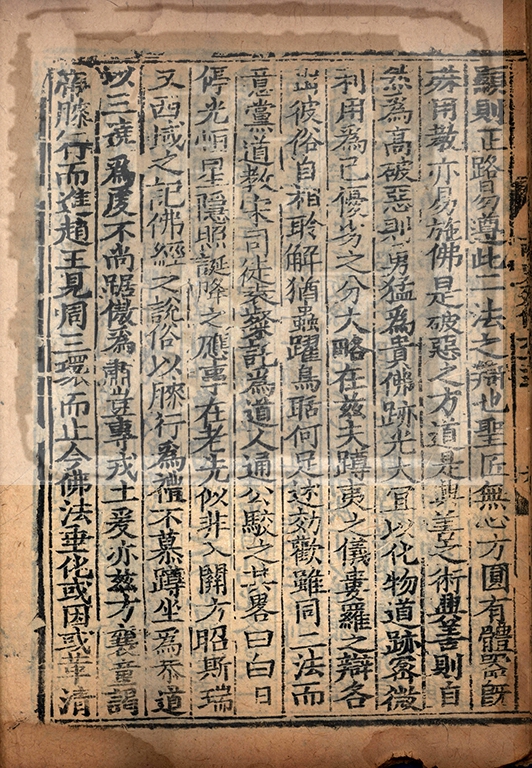 顯則正路易遵此二法之辯也聖匠無心方圓有體器既
殊用教亦易施佛是破惡之方道是興善之術興善則自
然為高破惡則勇猛為貴佛跡光大宜以化物道跡密微
利用為己優劣之分大略在茲夫蹲夷之儀婁羅之辯各
出彼俗自相聆解猶蟲躍鳥聒何足述効歡雖同二法而
意黨道教宋司徒袁粲託為道人通公駮之其畧曰白日
停光恒星隱照誕降之應事在老先似非入關方昭斯瑞
又西域之記佛經之說俗以膝行為禮不慕蹲坐為恭道
以三遶為虔不尚踞傲為肅豈專戎土爰亦茲方襄童謁
帝膝行而進趙王見周三環而止今佛法垂化或因或革清